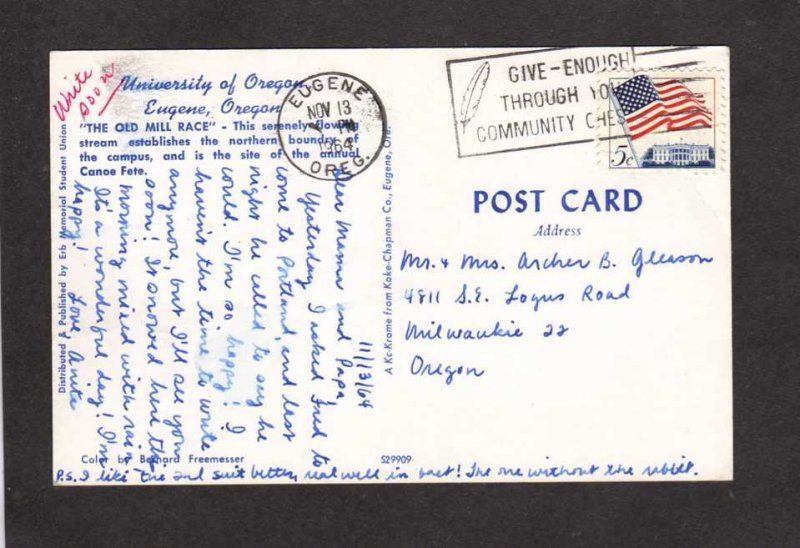 Write
soon
University of Oregon
Eugene, Oregon
"THE OLD MILL RACE" - This serenely flowing
stream establishes the northern boundry of
the campus, and is the site of the annual
Canoe Fete.
Distributed & Published by Erb Memorial Student Union
11/13/64
Dear Mama and Papa,
Yesterday I asked Fred to
come to Portland, and last
night he called to say he
could. I'm so happy! I
haven't the time to write
anymore, but I'll see you
soon! It snowed here this
morning mixed with rain
It's a wonderful day! I'm
happy! Love, Anita
Color by Bernard Freemesser
S29909
P.S. I like the 2nd suit better, real well in fact! The one without the
A Kc-Krome from Koke-Chapman Co., Eugene, Ore.
EUGENE
NOV 13
PM
1964
OREG.
GIVE-ENOUGH
THROUGH YO
COMMUNITY CHES
5c
POST CARD
Address
Mr. & Mrs. Archer B. Gleason
4811 S.E. Logus Road
Milwaukie 22
Oregon